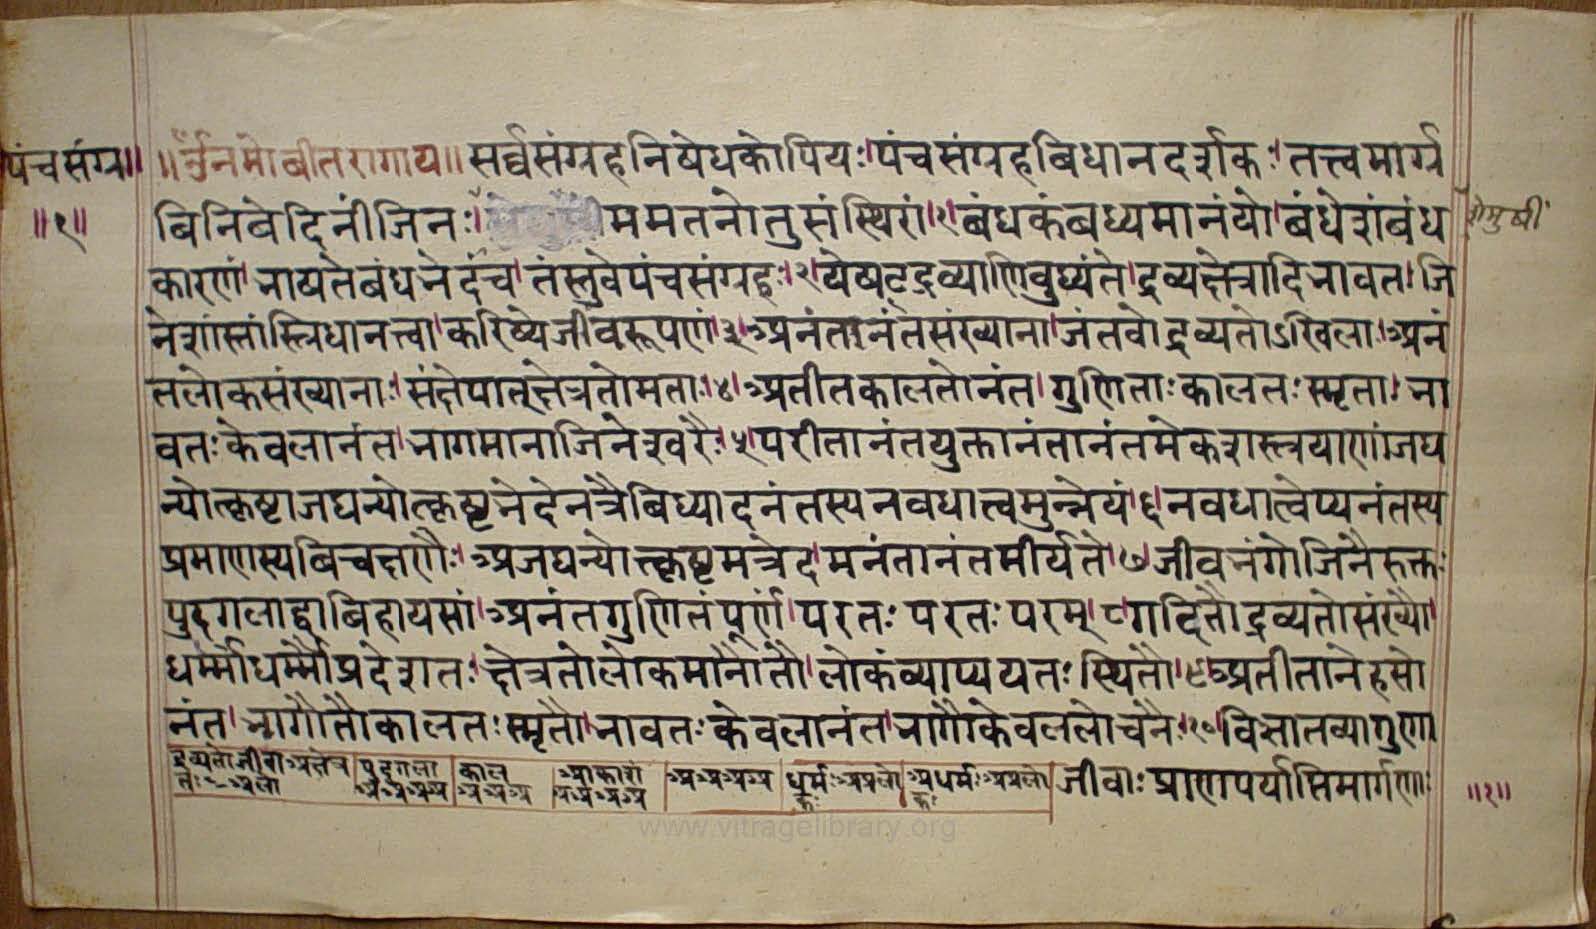 पंचसंग्र॥ ॥ॐनमोबीतरागाय॥ सर्व्वसंग्रहनिषेधकोपियः।पंचसंग्रहबिधानदर्शकः।तत्त्वमार्ग्ग
॥१॥ बिनिबेदिनींजिनः। ममतनोतुसंस्थिरां।१।बंधकंबध्यमानंयो।बंधेशंबंध शेमुषीं
कारणं।भाषतेबंधभेदंच।तंस्तुवेपंचसंग्रहः।२।येषट्द्रव्याणिवुध्यंते।द्रव्यक्षेत्रादिभावत।जि
नेशांस्तांस्त्रिधानत्त्वा।करिष्येजीवरूपणं।३।अनंतानंतसंख्याना।जंतवोद्रव्यतोऽखिलाः।अनं
तलोकसंख्यानाः।संक्षेपात्क्षेत्रतोमताः।४।अतीतकालतोनंत।गुणिताःकालतःस्मृता।भा
वतःकेवलानंत।भागमानाजिनेश्वरैः।५।परीतानंतयुक्तानंतानंतमेकशस्त्रयाणां।जघ
न्योत्कृष्टाजघन्योत्कृष्टभेदेनत्रैबिध्यादनंतस्यनवधात्त्वमुन्नेयं।६।नवधात्वेप्यनंतस्य
प्रमाणस्यबिचक्षणैः।अजघन्योत्कृष्टमत्रेद।मनंतानंतमीर्यते।७।जीवभंगोजिनैरुक्तः
पुद्गलाद्धाबिहायसां।अनंतगुणितंपूर्णं।परतःपरतःपरम्।८।गदितौद्रव्यतोसंख्यौ।
धर्म्मोधर्म्मौप्रदेशतः।क्षेत्रतोलोकमानौतौ।लोकंव्याप्ययतःस्थितौ।९।अतीतानेहसो
नंत।भागौतौकालतःस्मृतौ।भावतःकेवलानंत।भागौकेवललोचनैः।१०।विज्ञातव्यागुणा
जीवाःप्राणपर्याप्तिमार्गणाः ॥१॥
पुद्गला काल आकाश धर्मः अधर्मः
www.vitragelibrary.org